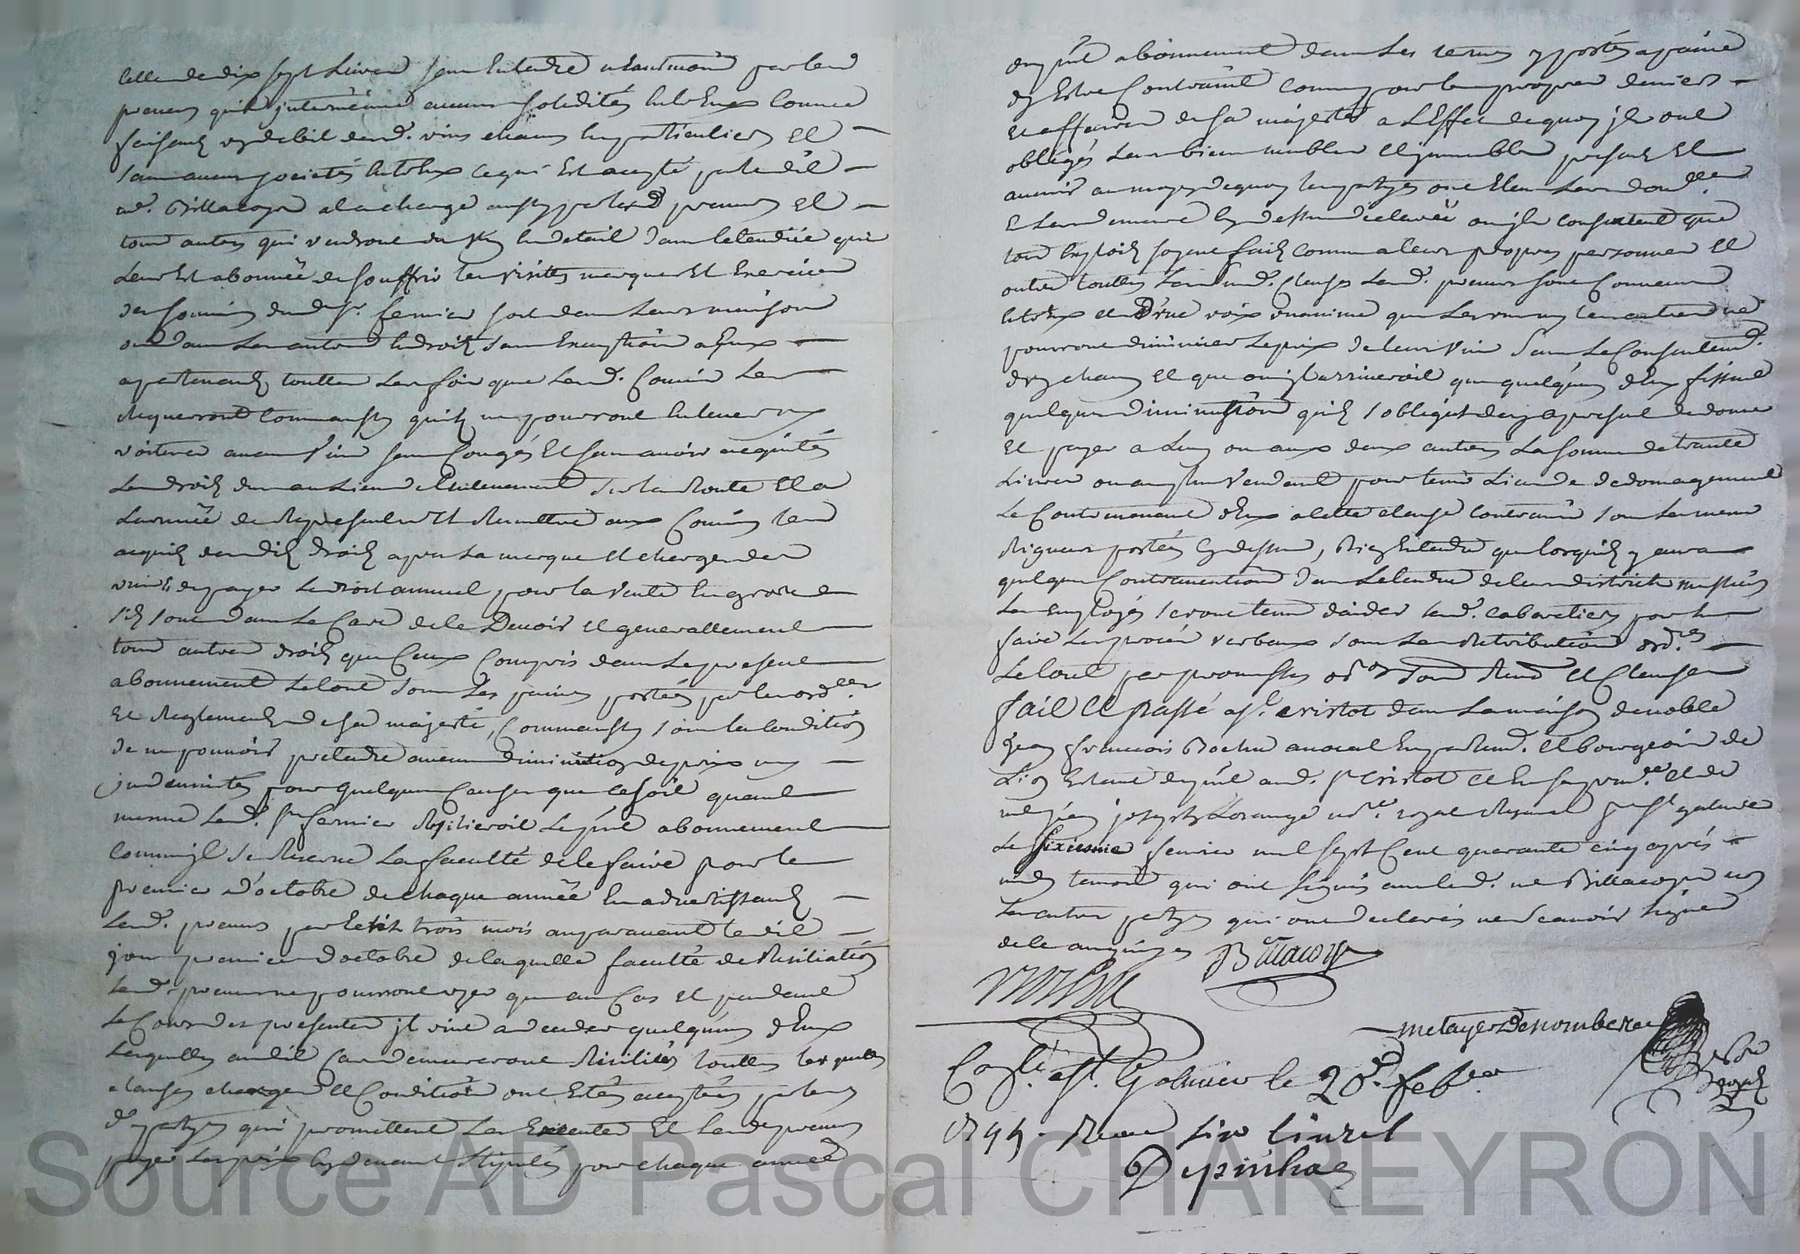 celle de dix sept Livres sans Entendre neantmoins par les
preneurs quil intervienne aucune soliditée entr'Eux comme
faisant debit desd. vins chacun En particulier Et
sans aucune societés entr'Eux ce qui Est accepté par ledit
sr. Billacoys a la charge aussy par lesd preneurs Et
tous autres qui vendront du vin En detail dans letendüe qui
Leur Est abonnée de souffrir les visittes marques Et Exercices
des Commis dudt. sr. fermier soit dans Leurs maisons
ou dans Les autres Endroits sans Exception a Eux
apartenants touttes Les fois que Lesd. Commis Les
Requerront comme aussy quils ne pourront Enlever ny
voiturer aucun vin sans Congés Et sans avoir acquités
Les droits du au Lieu de l'Enlevement de la Route Et a
Larrivée de Representer Et Remettre aux Commis les
acquits desdits droits apres La marque Et charge des
vins de payer Le droit annuel pour la vente En gros
sils sont dans Le Cas de le Devoir Et generallement
tous autres droits que Ceux Compris dans Le present
abonnement Le tout sous Les peines portées par les ord.ces
Et Reglements de sa majesté, Comme aussy sous la condition
de ne pouvoir pretendre aucune diminution de prix ny
jndemnités pour quelques Causes que ce soit quand
meme Led. sr. fermier Resilieroit Le pnt abonnement
Comme jl se Reserve La faculté de le faire pour le
premier d'octobre de chaque année En advertissant
Lesd. preneurs par Ecrit trois mois auparavant ledit
jour premier d'octobre de laquelle faculté de Resiliation
Lesd. preneurs ne pourront user qu'au Cas Et pendant
Le Cours des presentes jl vint a deceder quelqu'uns d'Eux
Lesquelles audit Cas demeureront Resiliées touttes lesquelles
clauses charges Et Conditions ont Etés acceptées par les
d. partyes qui promettent Les Executer Et Lesd preneurs
payer Les prix cy devant stipulés pour chaque année
dupnt abonnement dans Les termes y portés a peine
dy Estre Contraint comme pour les propres deniers
Et affaires de sa majesté a L'Effet de quoy jls ont
obligés Leurs biens meubles Et jmmeubles presents Et
avenir au moyen de quoy les partyes ont Eleu Leurs dom.lles
Et Leurs demeures cy dessus declarée ou jls consentent que
tous Exploits soyent faits comme a leurs propres personnes Et
outre touttes Lesd. Clauses Lesd. preneurs sont Convenus
Entr'Eux Et D'une voix unanime que Les uns ny Les autres ne
pourront diminuer Le prix de leur vin sans Le Consentemt.
de chacun Et que ou jl arriveroit que quelqu'uns d'Eux fissent
quelque diminution quils s'obligent des a present de donner
Et payer a Luy ou aux deux autres La somme de trante
Livres ou autres Vendant pour tenir Lieu de dedomagement
Le Contrevenant d'Eux a cette clause contraint sous La meme
Rigueur portée cy dessus, Bien Entendu que lorsquil y aura
quelque Contravention dans Letendue de leur districts
Les Employés seront tenus d'aider lesd. cabaretiers pour En
faire Les procés verbaux sous La Retribution ord.re
Le tout par promesses ob.on soum Renon Et Clauses
fait Et Passé a St. cristot dans La maison de noble
Jean francois Rochu avocat En parlemt. Et bourgeois de
Lion Estant depnt aud. St Cristot Et En sa pnce. Et de
me jean joseph Lorange nre. royal Reservé pr St galmier
Le sixieme fevrier mil sept Cent quarante cinq apres
midy temoins qui ont signés avec led. me Billacoys non
Les autres partyes qui ont declarés ne scavoir signer
de ce enquis
Billacoys
metayer Denombret
Conlé. a St. Galmier le 20e. feber
1745. Receu six livres
Depinhac
Source AD Pascal CHAREYRON